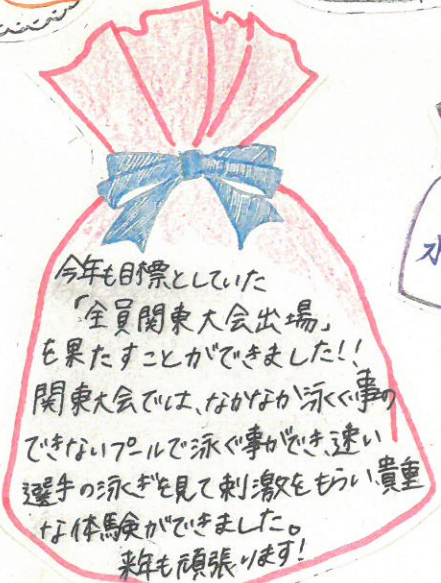 今年も目標としていた
「全員関東大会出場」
を果たすことができました!!
関東大会では、なかなか泳ぐ事の
できないプールで泳ぐ事ができ、速い
選手の泳ぎを見て刺激をもらい貴重
な体験ができました。
来年も頑張ります!
水